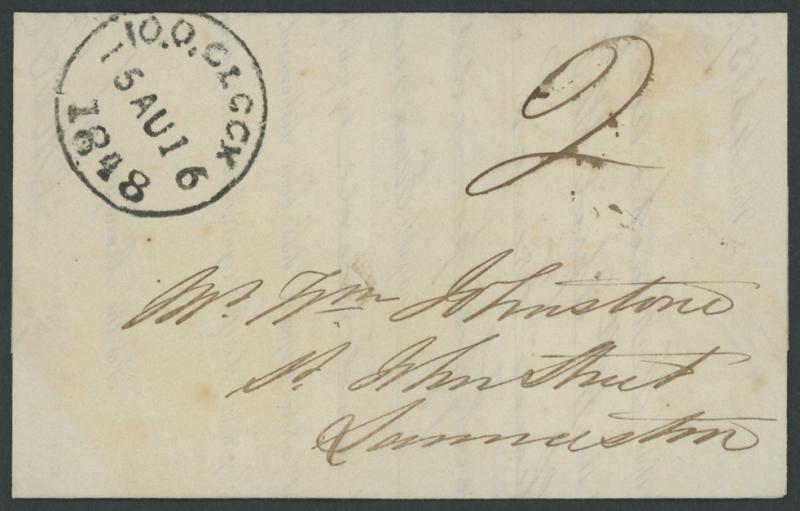 10.O.CLOCK
15 AU 16
1848
2
Mr. Wm Johnstone
St. John Street
Launceston